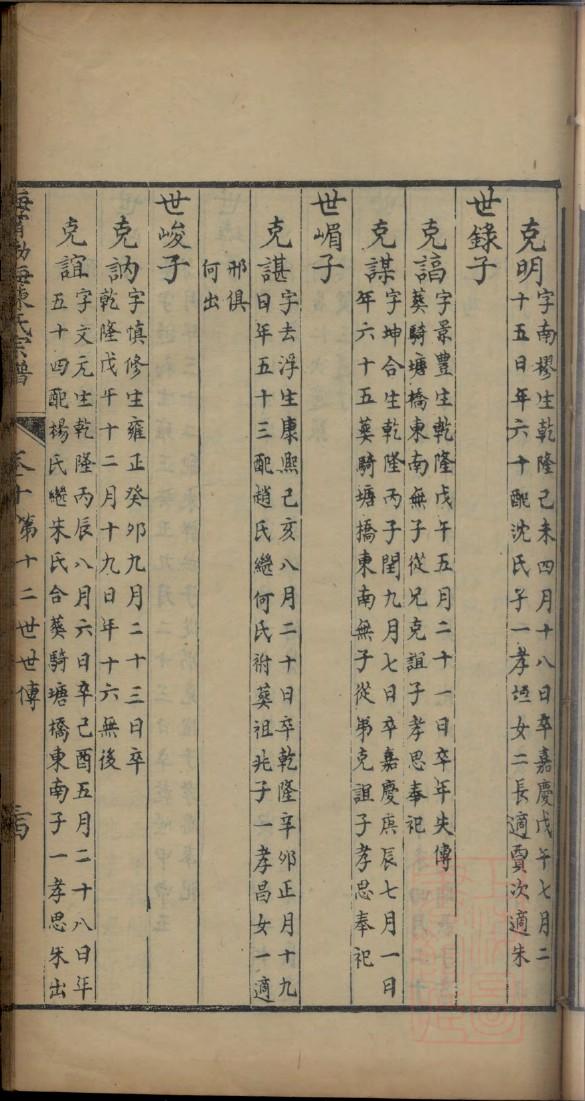 克明
字南樛生乾隆己未四月十八日卒嘉慶戊午七月二
十五日年六十配沈氏子一孝垣女二長適賈次適朱
世錄子
克諂
字景豊生乾隆戊午五月二十一日卒年失傳
葬騎塘橋東南無子從兄克誼子孝思奉祀
克謀
字坤合生乾隆丙子閏九月七日卒嘉慶庚辰七月一日
年六十五葬騎塘橋東南無子從弟克誼子孝思奉祀
世嵋子
克諶
字去浮生康熙己亥八月二十日卒乾隆辛卯正月十九
日年五十三配趙氏繼何氏祔葬祖兆子一孝昌女一適
邢俱
何出
世峻子
克訥
字慎修生雍正癸卯九月二十三日卒
乾隆戊午十二月十九日年十六無後
克誼
字文元生乾隆丙辰八月六日卒己酉五月二十八日年
五十四配楊氏繼朱氏合葬騎塘橋東南子一孝思朱出
海甯渤海陳氏宗譜
卷十 第十二世世傳